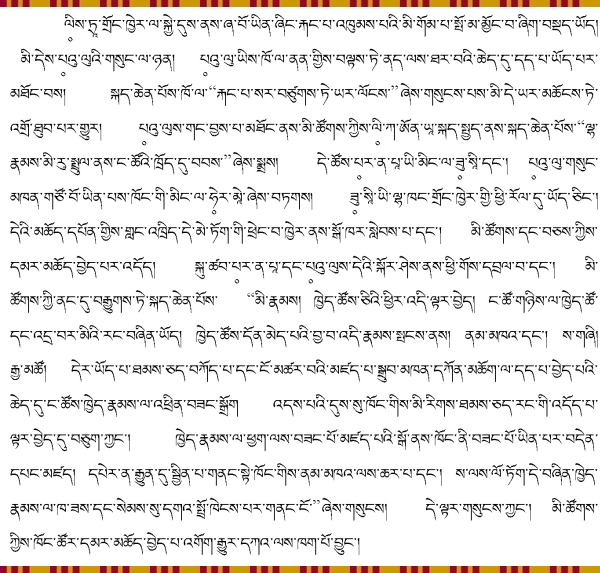 ལིས་ཏྲ་གྲོང་ཁྱེར་ལ་སྐྱེ་དུས་ནས་ཞ་བོ་ཡིན་ཞིང་རྐང་པ་འཁུམས་པའི་མི་གོམ་པ་སྤོ་མ་མྱོང་བ་ཞིག་བསྡད་ཡོད།
མི་དེས་པའུ་ལུའི་གསུང་ལ་ཉན། པའུ་ལུ་ཡིས་ཁོ་ལ་ནན་གྱིས་བལྟས་ཏེ་ནད་ལས་ཐར་བའི་ཆེད་དུ་དད་པ་ཡོད་པར་
མཐོང་བས། སྐད་ཆེན་པོས་ཁོ་ལ་“རྐང་པ་སར་བཙུགས་ཏེ་ཡར་ལོངས་”ཞེས་གསུངས་པས་མི་དེ་ཡར་མཆོངས་ཏེ་
འགྲོ་ཐུབ་པར་གྱུར། པའུ་ལུས་གང་བྱས་པ་མཐོང་ནས་མི་ཚོགས་ཀྱིས་ལི་ཀ་ཨོན་ཡ་སྐད་སྤྱད་ནས་སྐད་ཆེན་པོས་“ལྷ་
རྣམས་མི་རུ་སྤྲུལ་ནས་ང་ཚོའི་ཁྲོད་དུ་བབས་”ཞེས་སྨྲས། དེ་ཚོས་པར་ན་པཱ་ཡི་མིང་ལ་ཟུ་སི་དང་། པའུ་ལུ་གསུང་
མཁན་གཙོ་བོ་ཡིན་པས་ཁོང་གི་མིང་ལ་ཧེར་མེ་ཞེས་བཏགས། ཟུ་སི་ཡི་ལྷ་ཁང་གྲོང་ཁྱེར་གྱི་ཕྱི་རོལ་དུ་ཡོད་ཅིང་།
དེའི་མཆོད་དཔོན་གྱིས་གླང་འཁྲིད་དེ་མེ་ཏོག་གི་ཕྲེང་བ་ཁྱེར་ནས་སྒོ་ཁར་སླེབས་པ་དང་། མི་ཚོགས་དང་བཅས་ཀྱིས་
དམར་མཆོད་བྱེད་པར་འདོད། སྐུ་ཚབ་པར་ན་པཱ་དང་པའུ་ལུས་དེའི་སྐོར་ཤེས་ནས་ཕྱི་གོས་དབྲལ་བ་དང་། མི་
ཚོགས་ཀྱི་ནང་དུ་བརྒྱུགས་ཏེ་སྐད་ཆེན་པོས་ “མི་རྣམས། ཁྱེད་ཚོས་ཅིའི་ཕྱིར་འདི་ལྟར་བྱེད། ང་ཚོ་གཉིས་ལ་ཁྱེད་ཚོ་
དང་འདྲ་བར་མིའི་རང་བཞིན་ཡོད། ཁྱེད་ཚོས་དོན་མེད་པའི་བྱ་བ་འདི་རྣམས་སྤངས་ནས། ནམ་མཁའ་དང་། ས་གཞི།
རྒྱ་མཚོ། དེར་ཡོད་པ་ཐམས་ཅད་བཀོད་པ་དང་ངོ་མཚར་བའི་མཛད་པ་སྒྲུབ་མཁན་དཀོན་མཆོག་ལ་དད་པ་བྱེད་པའི་
ཆེད་དུ་ང་ཚོས་ཁྱེད་རྣམས་ལ་འཕྲིན་བཟང་སྒྲོག འདས་པའི་དུས་སུ་ཁོང་གིས་མི་རིགས་ཐམས་ཅད་རང་གི་འདོད་པ་
ལྟར་བྱེད་དུ་བཅུག་ཀྱང་། ཁྱེད་རྣམས་ལ་ཕྱག་ལས་བཟང་པོ་མཛད་པའི་སྒོ་ནས་ཁོང་ནི་བཟང་པོ་ཡིན་པར་བདེན་
དཔང་མཛད། དཔེར་ན་རྒྱུན་དུ་སྦྱིན་པ་གནང་སྟེ་ཁོང་གིས་ནམ་མཁའ་ལས་ཆར་པ་དང་། ས་ལས་ལོ་ཏོག་དེ་བཞིན་ཁྱེད་
རྣམས་ལ་ཁ་ཟས་དང་སེམས་སུ་དགའ་སྤྲོ་ཁེངས་པར་གནང་ངོ་”ཞེས་གསུངས། དེ་ལྟར་གསུངས་ཀྱང་། མི་ཚོགས་
ཀྱིས་ཁོང་ཚོར་དམར་མཆོད་བྱེད་པ་འགོག་རྒྱུར་དཀའ་ལས་ཁག་པོ་བྱུང་།